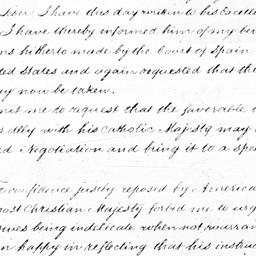 Sir. I have this day written to his Excelle
I have thereby informed him of my be
ns hitherto made by the Court of Spain
ted States and again requested that the
ay now be taken.
mit me to request that the favorable
s ally with his Catholic Majesty may
ed Negotiation and bring it to a spe
confidence justly reposed by America
most Christian Majesty forbid me to urg
tives being indelicate when not warran
m happy in reflecting that his instruc